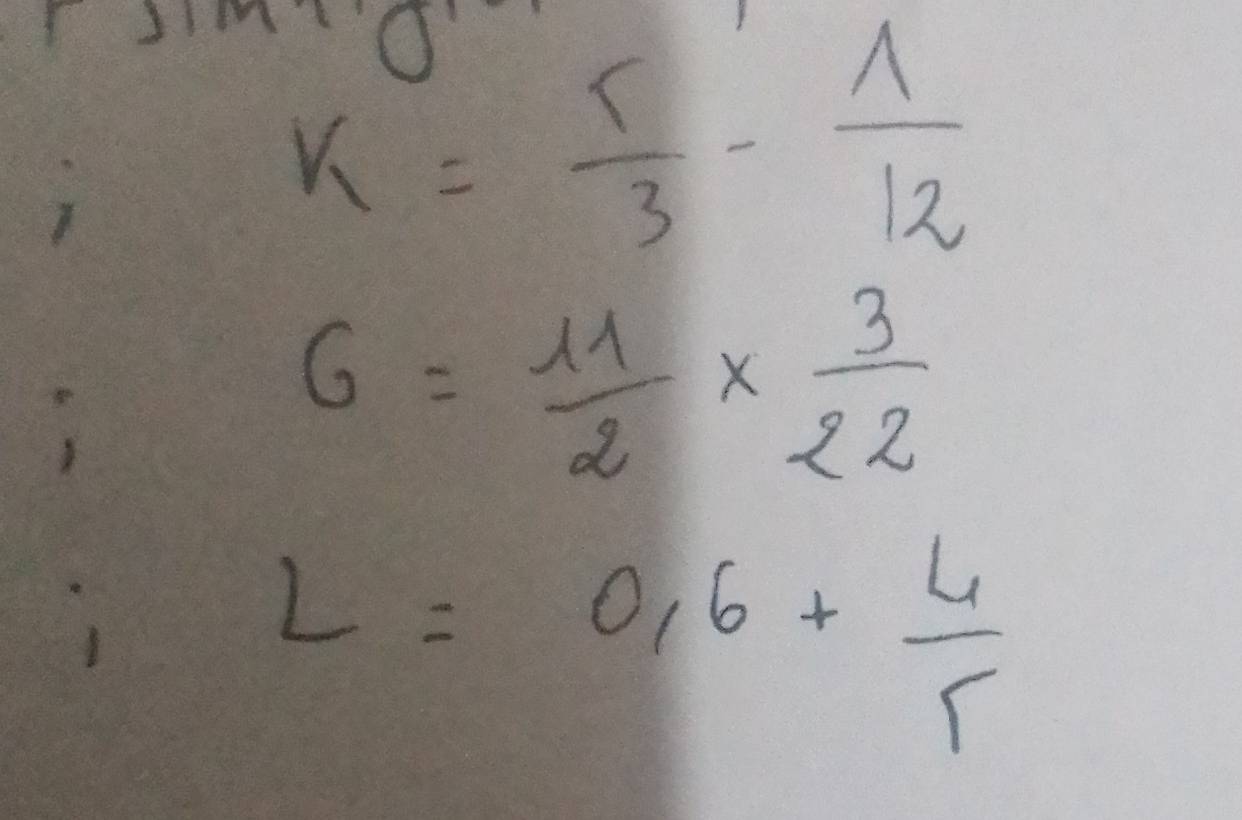 ; K = 5/3 - 1/12
; G = 11/2 x 3/22
; L = 0,6 + 4/5